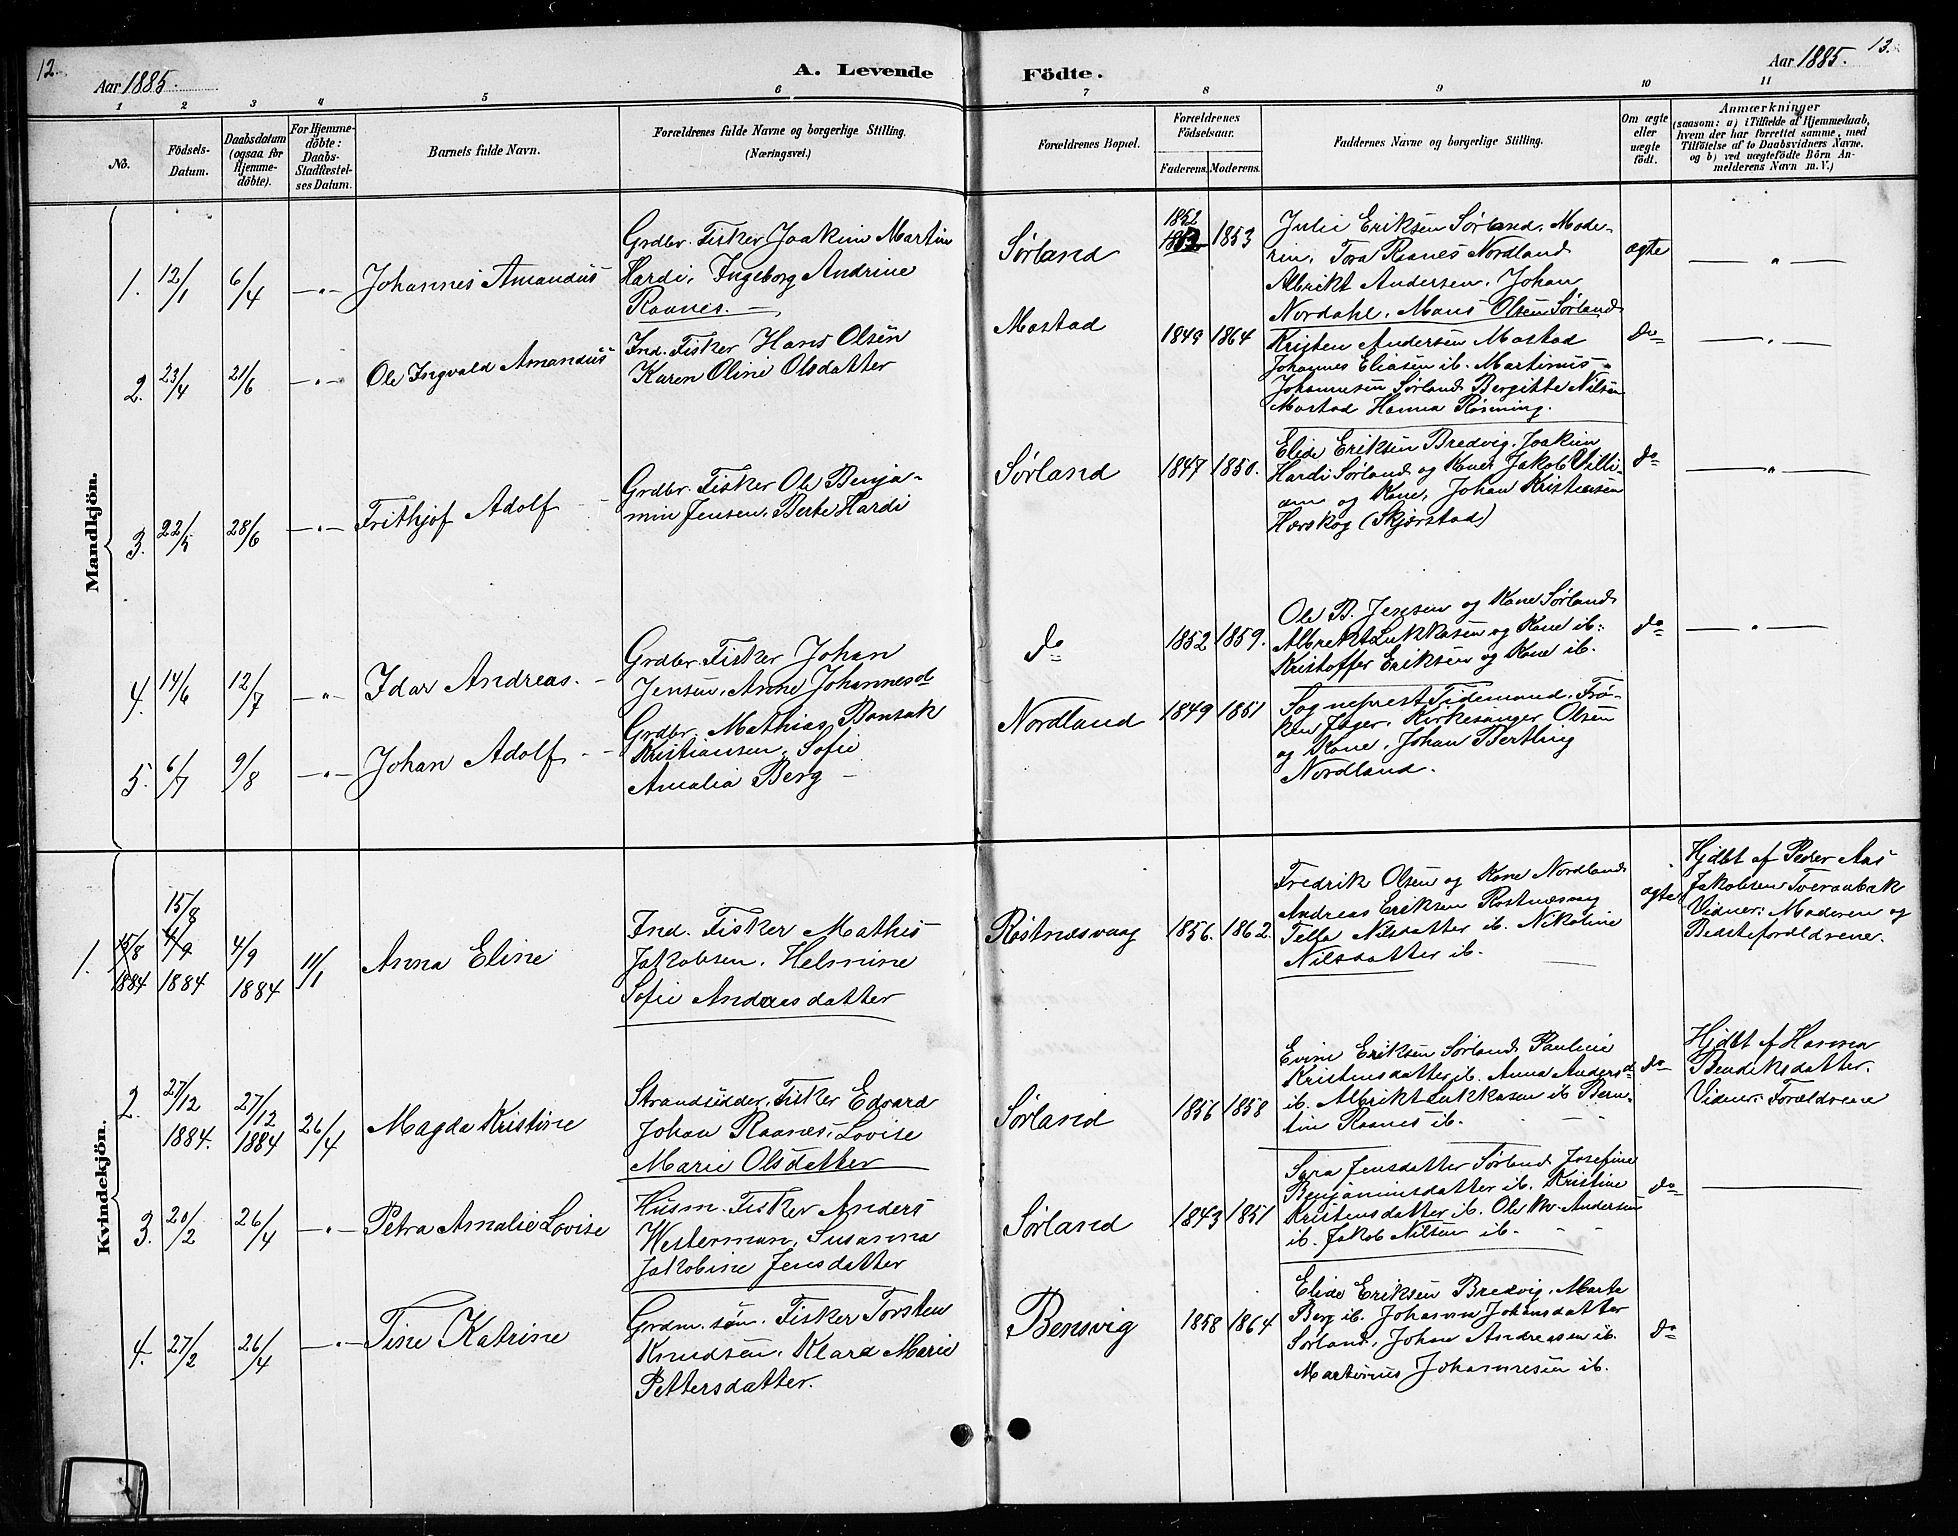 12.
Aar 1885.
A. Levende
Födte.
Aar 1885.
13.
1
2
3
4
5
6
7
8
9
10
11
No.
Födsels-
Datum.
Daabsdatum
(ogsaa for
Hjemme-
döbte).
For Hjemme-
döbte:
Daabs-
Stadfæstel-
ses Datum.
Barnets fulde Navn.
Forældrenes fulde Navne og borgerlige Stilling.
(Næringsvei.)
Forældrenes Bopæl.
Forældrenes
Födselsaar.
Faderens.
Moderens.
Faddernes Navne og borgerlige Stilling.
Om ægte
eller
uægte
födt.
Anmærkninger
(saasom: a) i Tilfælde af Hjemmedaab,
hvem der har forrettet samme, med
Tilföielse af to Daabsvidners Navne.
og b) ved uægtefödte Börn An-
melderens Navn m. V.)
Mandkjön.
1.
12/1
6/4
— " —
Johannes Amandus
Grdbr. Fisker Joakim Martin
Hardi, Ingeborg Andrine
Raanes. —
Sørland
1852
1853
Julie Eriksen Sørland, Mode-
rin, Tora Raanes Nordland
Albrikt Andersen, Johan
Nordahl, Mons Olsen Sørland
ægte
— " —
2.
23/4
21/6
— " —
Ole Ingvald Amandus
Ind. Fisker Hans Olsen
Karen Oline Olsdatter
Mostad
1849
1864
Kristen Andersen Mostad
Johannes Eliasen ib. Martinus
Johannesen Sørland Bergitte Nilsen
Mostad Hanna Røsning.
do
— " —
3.
22/5
28/6
— " —
Frithjof Adolf —
Grdbr. Fisker Ole Benja-
min Jensen, Berte Hardi
Sørland
1847
1850.
Elide Eriksen Bredvig, Joakim
Hardi Sørland og Kone, Jakob Villi-
am og Kone, Johan Kristiansen
Hærskog (Skjærstad)
do
— " —
4.
14/6
12/7
— " —
Idar Andreas. —
Grdbr. Fisker Johan
Jensen, Anne Johannesd
do
1852
1859.
Ole B. Jensen og Kone Sørland
Albrekt Lukkasen og Kone ib.
Kristoffer Eriksen og Kone ib.
do
— " —
5.
6/7
9/8
— " —
Johan Adolf — -
Grdbr. Mathias Bonsak
Kristiansen, Sofie
Amalia Berg —
Nordland
1849
1851
Sogneprest Tidemand, Frø-
ken Jager, Kirkesanger Olsen
og Kone, Johan Bertling
Nordland.
Kvindekjön.
1.
15/8
1884
15/8
4/9
1884
4/9
1884
11/1
Anna Eline
Ind. Fisker Mathis
Jakobsen, Helmine
Sofie Andreasdatter
Røstnesvaag
1856.
1862.
Fredrik Olsen og Kone Nordland
Andreas Eriksen Røstnesvaag
Tella Nilsdatter ib. Nikoline
Nilsdatter ib.
ægte
Hjdbt af Peder Aas
Jakobsen Tveraabak
Vidner: Moderen og
Bedsteforældrene.
2.
27/12
1884.
27/12
1884
26/4
Magda Kristine
Strandsidder, Fisker Edvard
Johan Raanes, Lovise
Marie Olsdatter
Sørland
1856
1858
Evine Eriksen Sørland Pauline
Kristensdatter ib. Anna Andersd
ib. Albrikt Lukkasen ib Bern-
tin Raanes ib.
do
Hjdbt af Hanna
Bendiksdatter.
Vidner: Forældrene
3.
20/2
26/4
— " —
Petra Amalie Lovise
Husm. Fisker Anders
Westerman, Susanna
Jakobine Jensdatter
Sørland
1843
1851
Sara Jensdatter Sørland Josefine
Benjaminsdatter ib. Kristine
Kristensdatter ib. Ole M. Andersen
ib. Jakob Nilsen ib.
do
4.
27/2
26/4
— " —
Tine Katrine
Grdm. søn. Fisker Torsten
Knudsen, Klara Marie
Pettersdatter.
Bensvig
1858
1864
Elide Eriksen Bredvig, Marte
Berg ib. Johanna Johansdatter
Sørland, Johan Andreassen ib.
Martinus Johannesen ib.
do